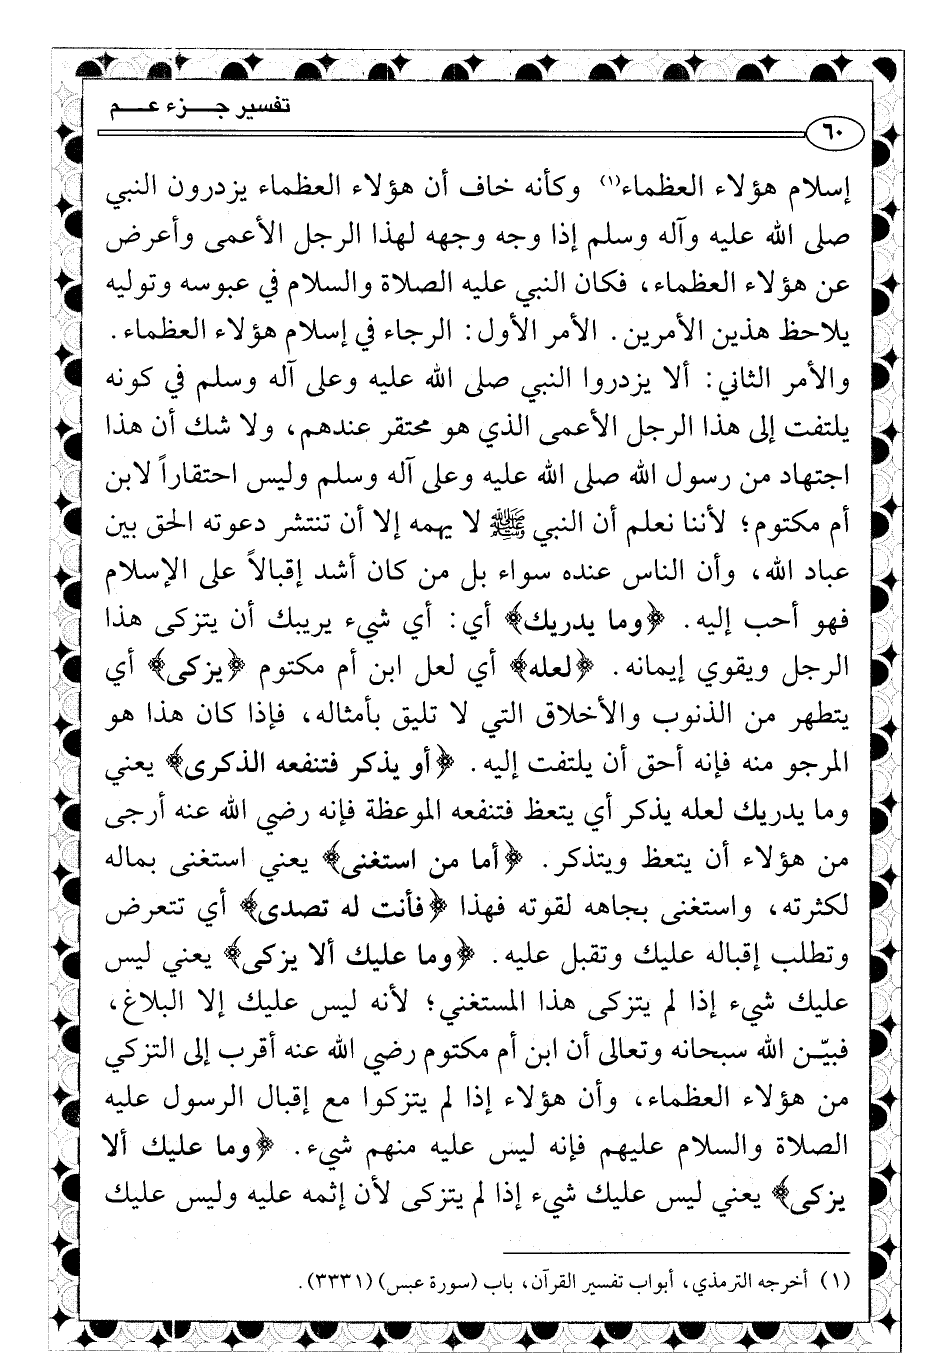 تفسير جـــزء عـــم
٦٠
إسلام هؤلاء العظماء(١) وكأنه خاف أن هؤلاء العظماء يزدرون النبي
صلى الله عليه وآله وسلم إذا وجه وجهه لهذا الرجل الأعمى وأعرض
عن هؤلاء العظماء، فكان النبي عليه الصلاة والسلام في عبوسه وتوليه
يلاحظ هذين الأمرين. الأمر الأول: الرجاء في إسلام هؤلاء العظماء.
والأمر الثاني: ألا يزدروا النبي صلى الله عليه وعلى آله وسلم في كونه
يلتفت إلى هذا الرجل الأعمى الذي هو محتقر عندهم، ولا شك أن هذا
اجتهاد من رسول الله صلى الله عليه وعلى آله وسلم وليس احتقاراً لابن
أم مكتوم؛ لأننا نعلم أن النبي ﷺ لا يهمه إلا أن تنتشر دعوته الحق بين
عباد الله، وأن الناس عنده سواء بل من كان أشد إقبالاً على الإسلام
فهو أحب إليه. ﴿وما يدريك﴾ أي: أي شيء يريبك أن يتزكى هذا
الرجل ويقوي إيمانه. ﴿لعله﴾ أي لعل ابن أم مكتوم ﴿يزكى﴾ أي
يتطهر من الذنوب والأخلاق التي لا تليق بأمثاله، فإذا كان هذا هو
المرجو منه فإنه أحق أن يلتفت إليه. ﴿أو يذكر فتنفعه الذكرى﴾ يعني
وما يدريك لعله يذكر أي يتعظ فتنفعه الموعظة فإنه رضي الله عنه أرجى
من هؤلاء أن يتعظ ويتذكر. ﴿أما من استغنى﴾ يعني استغنى بماله
لكثرته، واستغنى بجاهه لقوته فهذا ﴿فأنت له تصدى﴾ أي تتعرض
وتطلب إقباله عليك وتقبل عليه. ﴿وما عليك ألا يزكى﴾ يعني ليس
عليك شيء إذا لم يتزكى هذا المستغني؛ لأنه ليس عليك إلا البلاغ،
فبيّـن الله سبحانه وتعالى أن ابن أم مكتوم رضي الله عنه أقرب إلى التزكي
من هؤلاء العظماء، وأن هؤلاء إذا لم يتزكوا مع إقبال الرسول عليه
الصلاة والسلام عليهم فإنه ليس عليه منهم شيء. ﴿وما عليك ألا
يزكى﴾ يعني ليس عليك شيء إذا لم يتزكى لأن إثمه عليه وليس عليك
(١) أخرجه الترمذي، أبواب تفسير القرآن، باب (سورة عبس) (٣٣٣١).